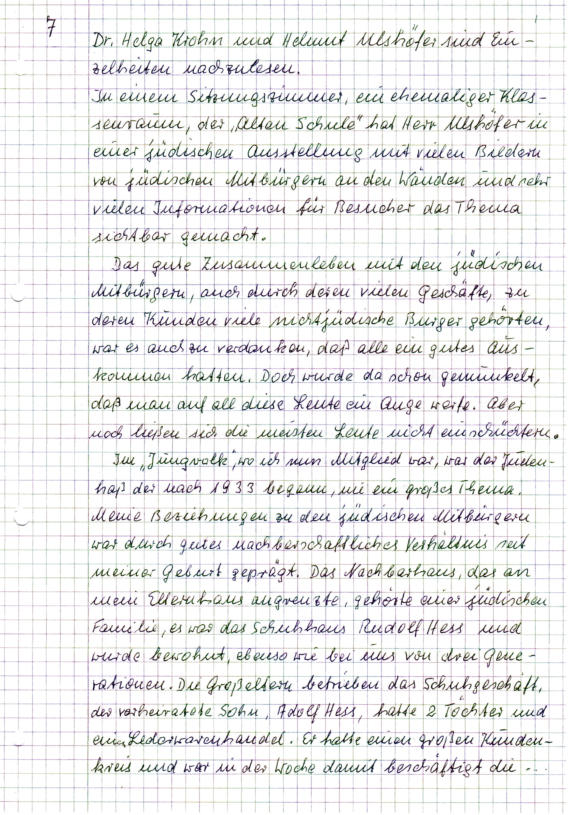 7
Dr. Helga Krohn und Helmut Ulshöfer sind Ein-
zelheiten nachzulesen.
In einem Sitzungszimmer, ein ehemaliger Klas-
senraum, der „Alten Schule" hat Herr Ulshöfer in
einer jüdischen Ausstellung mit vielen Bildern
von jüdischen Mitbürgern an den Wänden und sehr
vielen Informationen für Besucher das Thema
sichtbar gemacht.
Das gute Zusammenleben mit den jüdischen
Mitbürgern, auch durch deren vielen Geschäfte, zu
deren Kunden viele nichtjüdische Bürger gehörten,
war es auch zu verdanken, daß alle ein gutes Aus-
kommen hatten. Doch wurde da schon gemunkelt,
daß man auf all diese Leute ein Auge werfe. Aber
noch ließen sich die meisten Leute nicht einschüchtern.
Im „Jungvolk", wo ich nun Mitglied war, war der Juden-
haß der nach 1933 begann, nie ein großes Thema.
Meine Beziehungen zu den jüdischen Mitbürgern
war durch gutes nachbarschaftliches Verhältnis seit
meiner Geburt geprägt. Das Nachbarhaus, das an
mein Elternhaus angrenzte, gehörte einer jüdischen
Familie, es war das Schuhhaus Rudolf Hess und
wurde bewohnt, ebenso wie bei uns von drei Gene-
rationen. Die Großeltern betrieben das Schuhgeschäft,
der verheiratete Sohn, Adolf Hess, hatte 2 Töchter und
ein Lederwarenhandel. Er hatte einen großen Kunden-
kreis und war in der Woche damit beschäftigt die ...